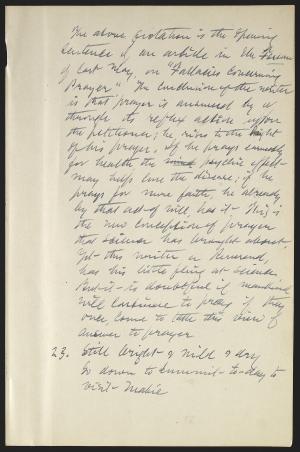 The above quotation is the opening
sentence of an article in the Forum
of last May, on "Fallacies Concerning
Prayer." The conclusion of the writer
is that prayer is answered by &
through its reflex action upon
the petitioner; he rises to the height
of his prayer. If he prays earnestly
for health the mind psychic effect
may help cure the disease; if he
prays for more faith, he already
by that act of will, has it. This is
the new conception of prayer
that science has brought about.
Yet this writer a Reverend,
has his little fling at science.
But it is doubtful if mankind
will continue to pray if they
once come to take this view of
answer to prayer
23. Still bright & mild & dry
Go down to summit to-day to
visit